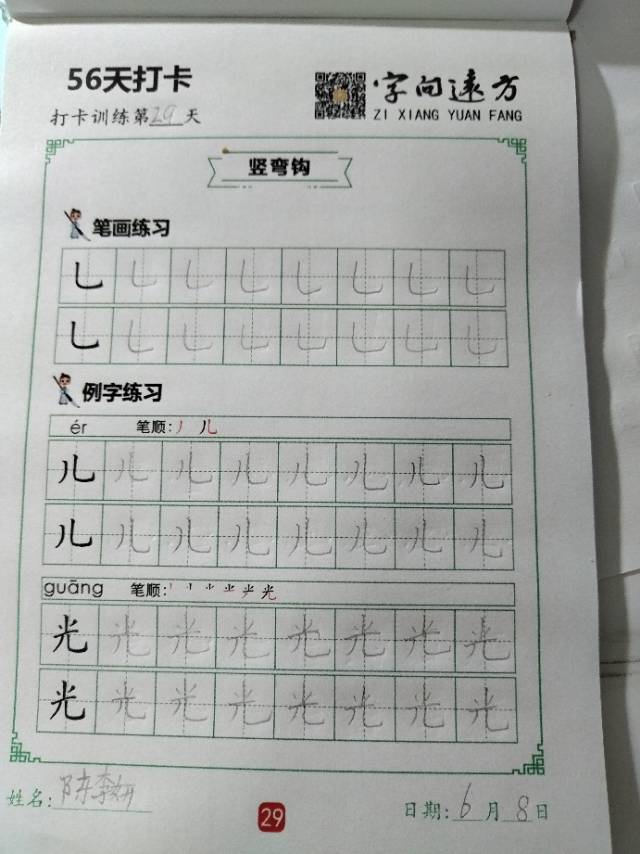 56天打卡
字向远方
打卡训练第29天
ZI XIANG YUAN FANG
竖弯钩
笔画练习
乚乚乚乚乚乚乚乚
乚乚乚乚乚乚乚乚
例字练习
ér 笔顺:丿 儿
儿儿儿儿儿儿儿儿
儿儿儿儿儿儿儿儿
guāng 笔顺:
光光光光光光光光
光光光光光光光光
姓名:陈李妍
29
日期:6月8日